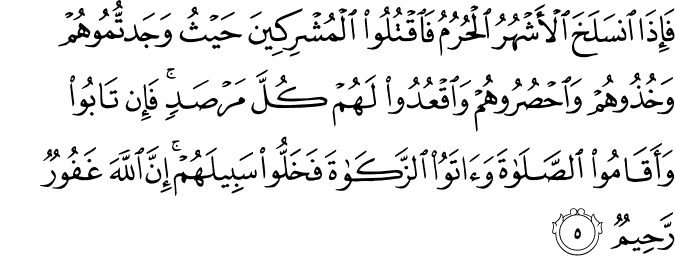 فَإِذَا ٱنسَلَخَ ٱلۡأَشۡهُرُ ٱلۡحُرُمُ فَٱقۡتُلُواْ ٱلۡمُشۡرِكِينَ حَيۡثُ وَجَدتُّمُوهُمۡ
وَخُذُوهُمۡ وَٱحۡصُرُوهُمۡ وَٱقۡعُدُواْ لَهُمۡ كُلَّ مَرۡصَدٖۚ فَإِن تَابُواْ
وَأَقَامُواْ ٱلصَّلَوٰةَ وَءَاتَوُاْ ٱلزَّكَوٰةَ فَخَلُّواْ سَبِيلَهُمۡۚ إِنَّ ٱللَّهَ غَفُورٞ
رَّحِيمٞ ٥